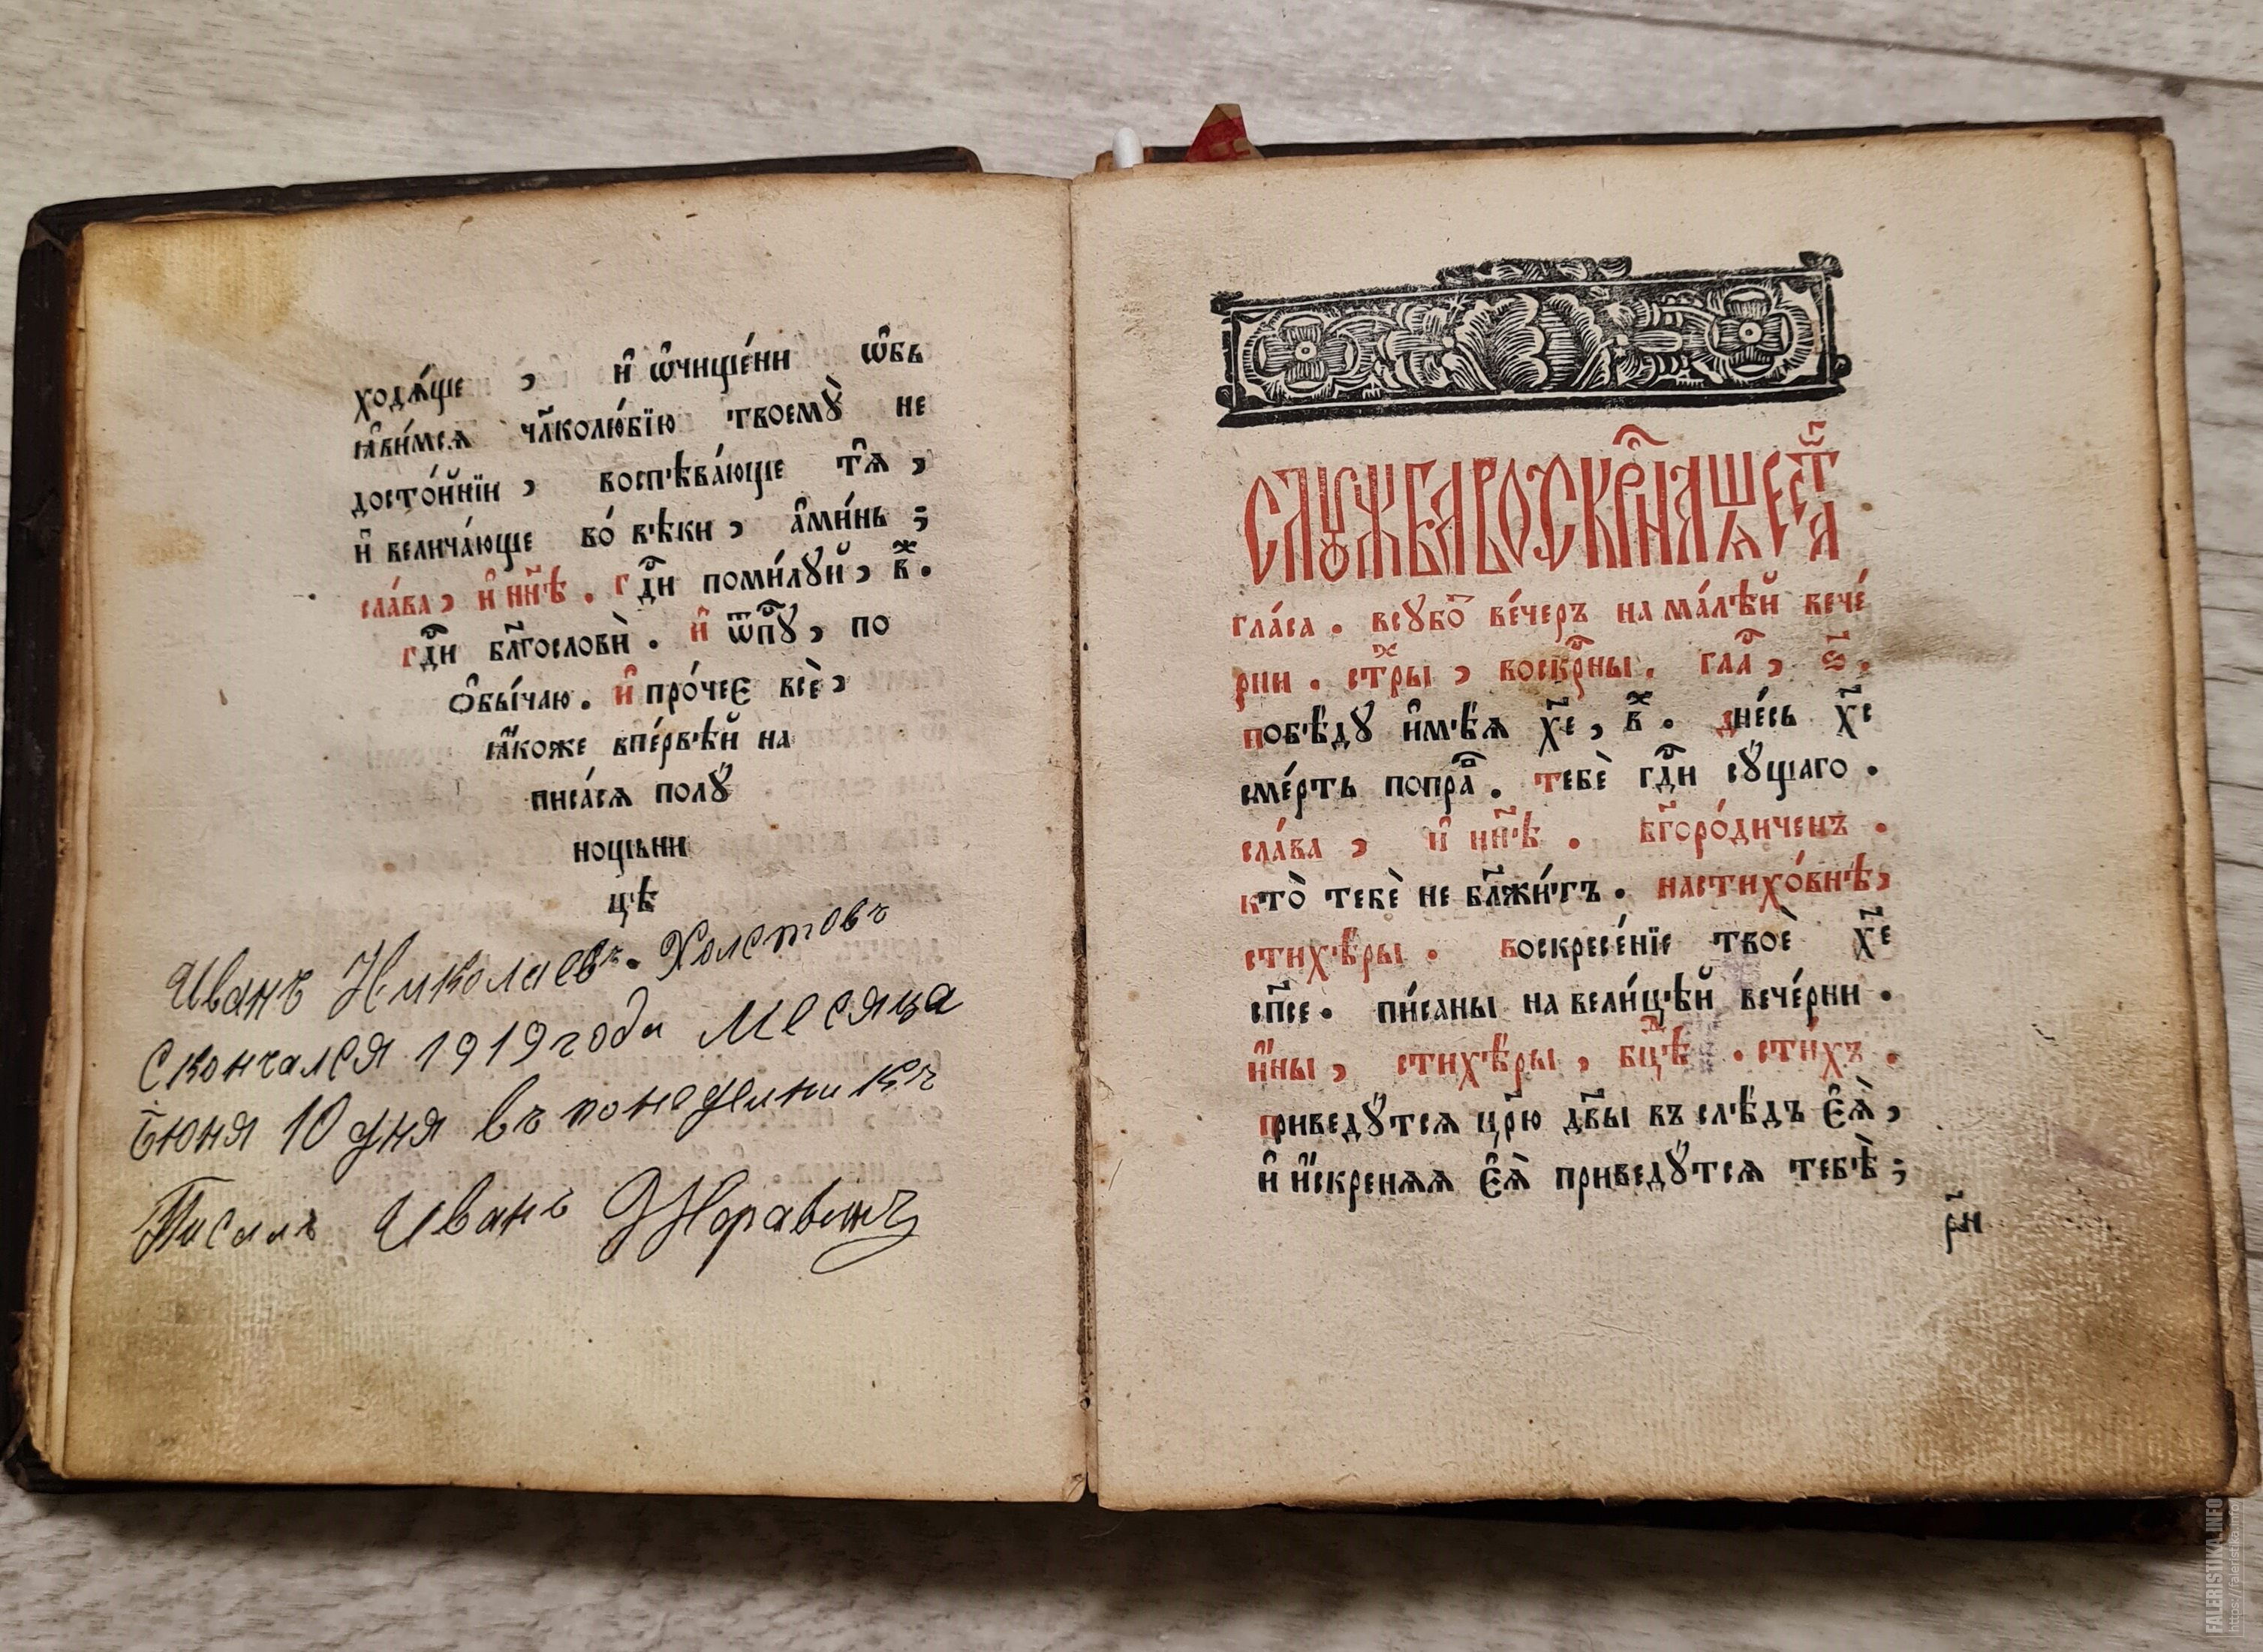 ходѧ́ще , и҆ ѡ҆чище́ни ѡ҆бь
ꙗ҆ви́мсѧ чл҃колю́бїю твоемꙋ̀ не
досто́йнїи , воспѣва́юще тѧ̀ ,
и҆ велича́юще во́ вѣки , а҆ми́нь ;
сла́ва , и҆ нн҃ѣ . гдⷭ҇и поми́лꙋй , в҃ⷤ .
гдⷭ҇и бл҃гословѝ . и҆ ѿпⷭ҇ꙋ , по
ѻ҆бы́чаю . и҆ про́чеє всѐ ,
ꙗ҆́коже впе́рвѣй на
писа́сѧ полꙋ̀
нощьни
цѣ
Иванъ Николаевъ. Холстовъ
Скончался 1919 года месяца
Іюня 10 дня въ понеделникъ
Писалъ Иванъ
слꙋжба воскрⷭ҇наѧ шестⷢ҇а
гла́са . всꙋбоⷮ ве́черъ на ма́лѣй вече́
рни . стⷯры , воскрⷭ҇ны . глаⷭ҇ , ѕ҃ .
побѣ́дꙋ и҆мѣ́ѧ хе҃ , в҃ⷤ . дне́сь хе҃
сме́рть попраⷡ҇ . тебѐ гдⷭ҇и сꙋ́щаго .
сла́ва , и҆ нн҃ѣ . бг҃оро́диченъ .
кто̀ тебѐ не бл҃жи́тъ . настихо́внѣ ,
стихѣ́ры . воскресе́нїе твоѐ хе҃
сп҃се . пи́саны на вели́цѣй вече́рни .
и҆́ны , стихѣ́ры , бцⷣѣ . сти́хъ .
приведꙋ́тсѧ цр҃ю дв҃ы въ слѣ́дъ є҆ѧ̀ ,
и҆ и҆́скренѧѧ є҆ѧ̀ приведꙋ́тсѧ тебѣ̀ ;
рн҃
FALERISTIKA.INFO
https://faleristika.info